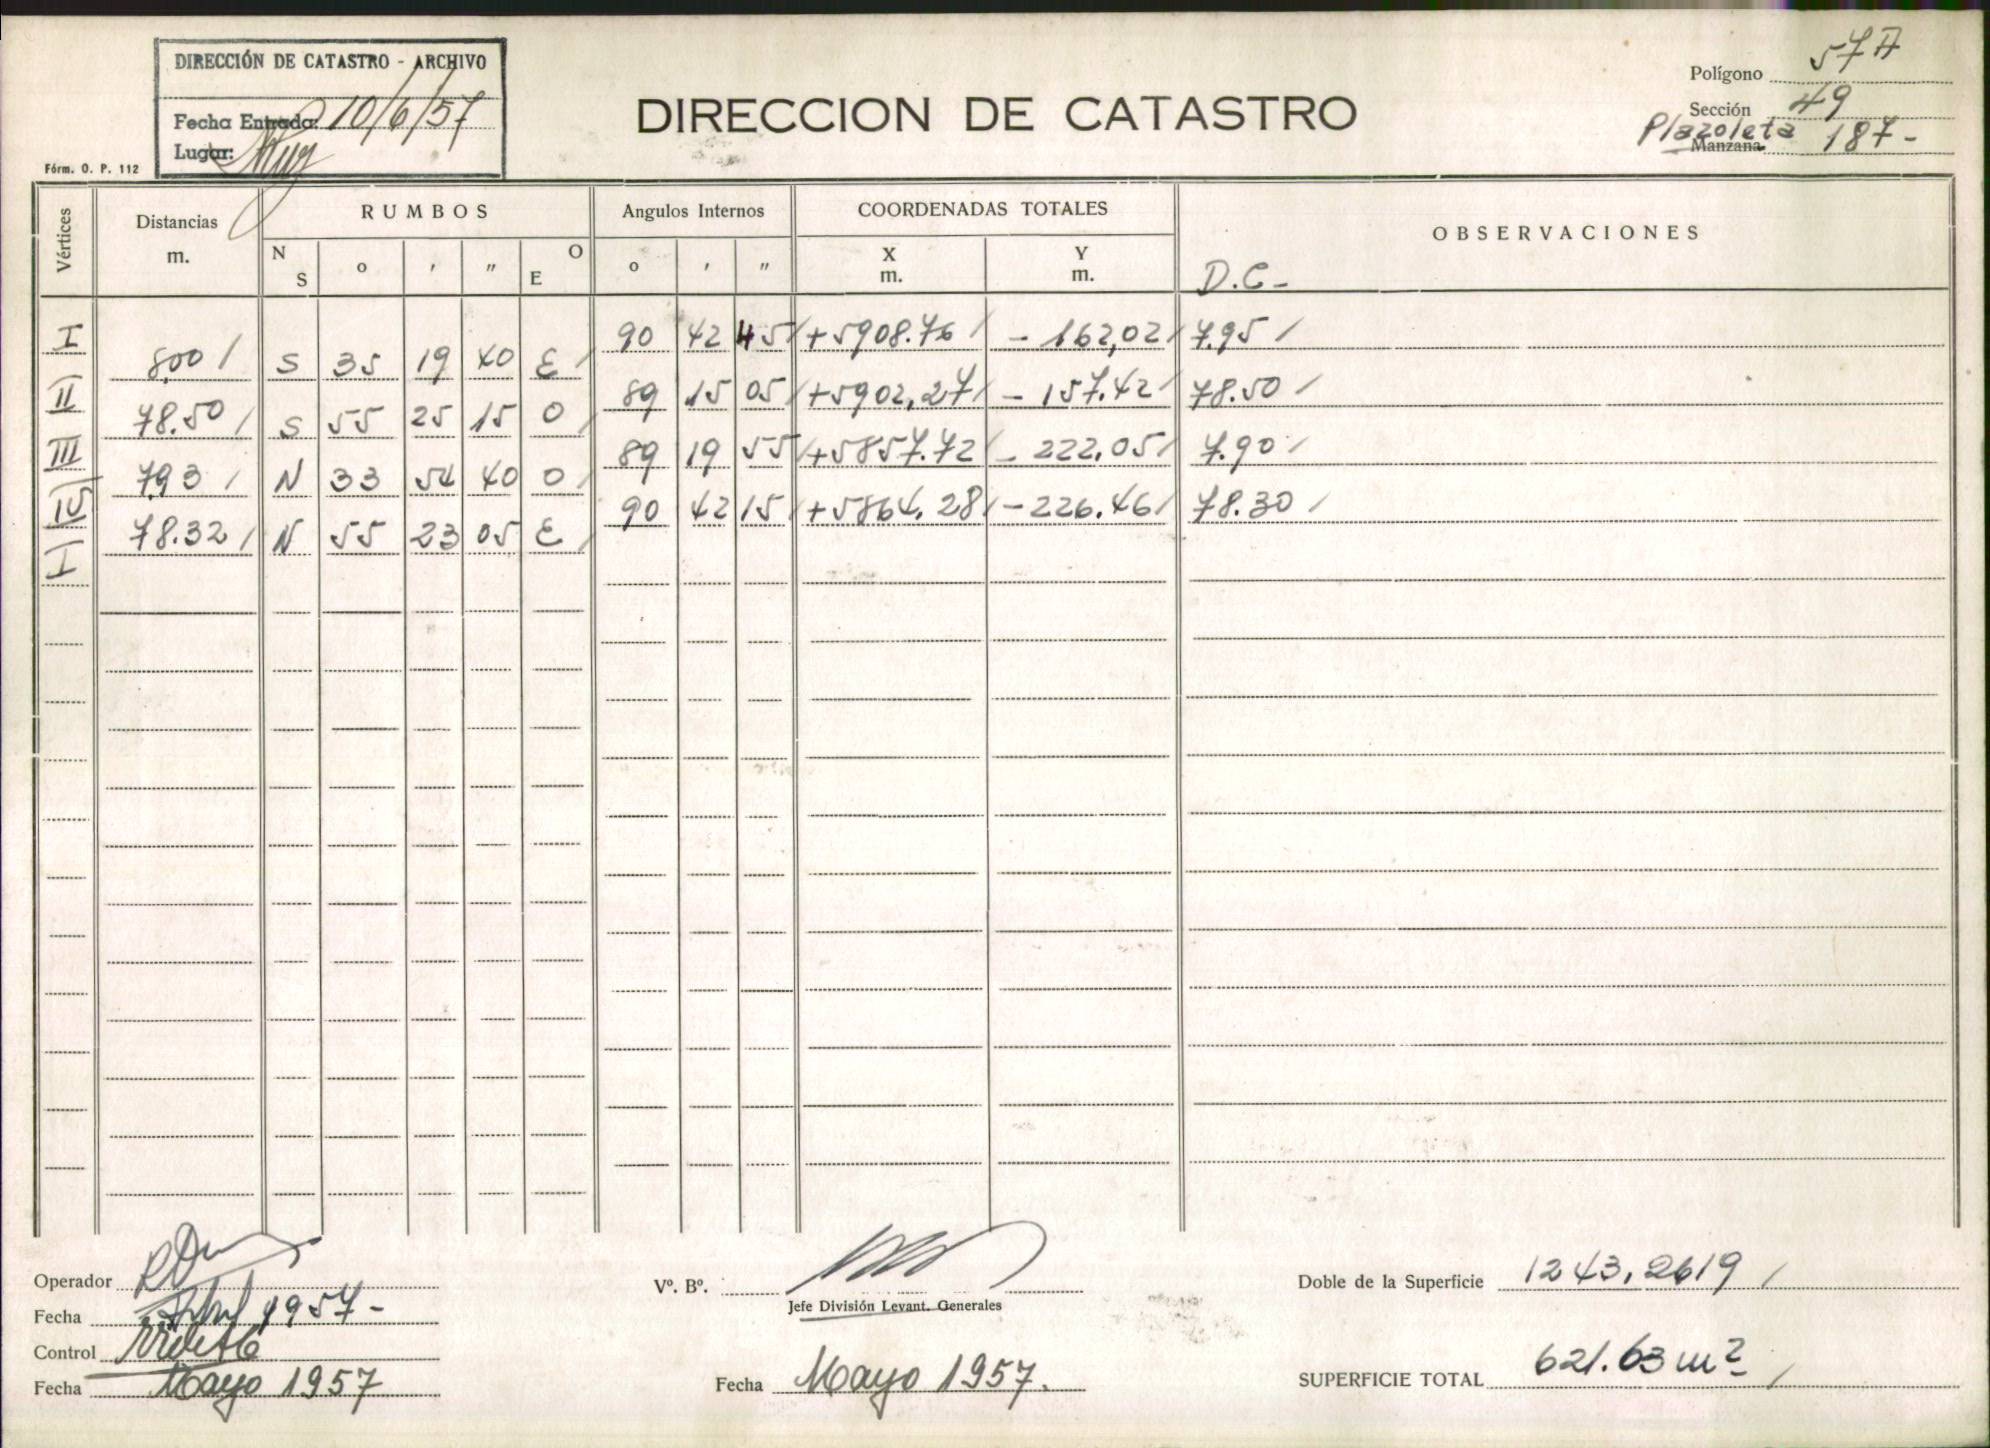 DIRECCIÓN DE CATASTRO - ARCHIVO
Fecha Entrada: 10/6/57
Lugar:
Fórm. O. P. 112
DIRECCION DE CATASTRO
Polígono 57A
Sección 49
Plazoleta
Manzana 187-
Vértices
Distancias
m.
RUMBOS
N S ° ' " O E
Angulos Internos
° ' "
COORDENADAS TOTALES
X
m.
Y
m.
OBSERVACIONES
D.C-
I 90 42 45 / +5908.76 / - 162,02 / 7.95 /
8,00 / S 35 19 40 E /
II 89 15 05 / +5902,27 / - 157.42 / 78.50 /
78.50 / S 55 25 15 O
III 89 19 55 / +5857.72 / - 222.05 / 7.90 /
7,93 / N 33 54 40 O /
IV 90 42 15 / +5864.28 / -226.46 / 78.30 /
78.32 / N 55 23 05 E /
I
Operador
Fecha Abril 1957-
Control
Fecha Mayo 1957
Vº. Bº.
Jefe División Levant. Generales
Fecha Mayo 1957.
Doble de la Superficie 1243,2619 /
SUPERFICIE TOTAL 621.63 m² /